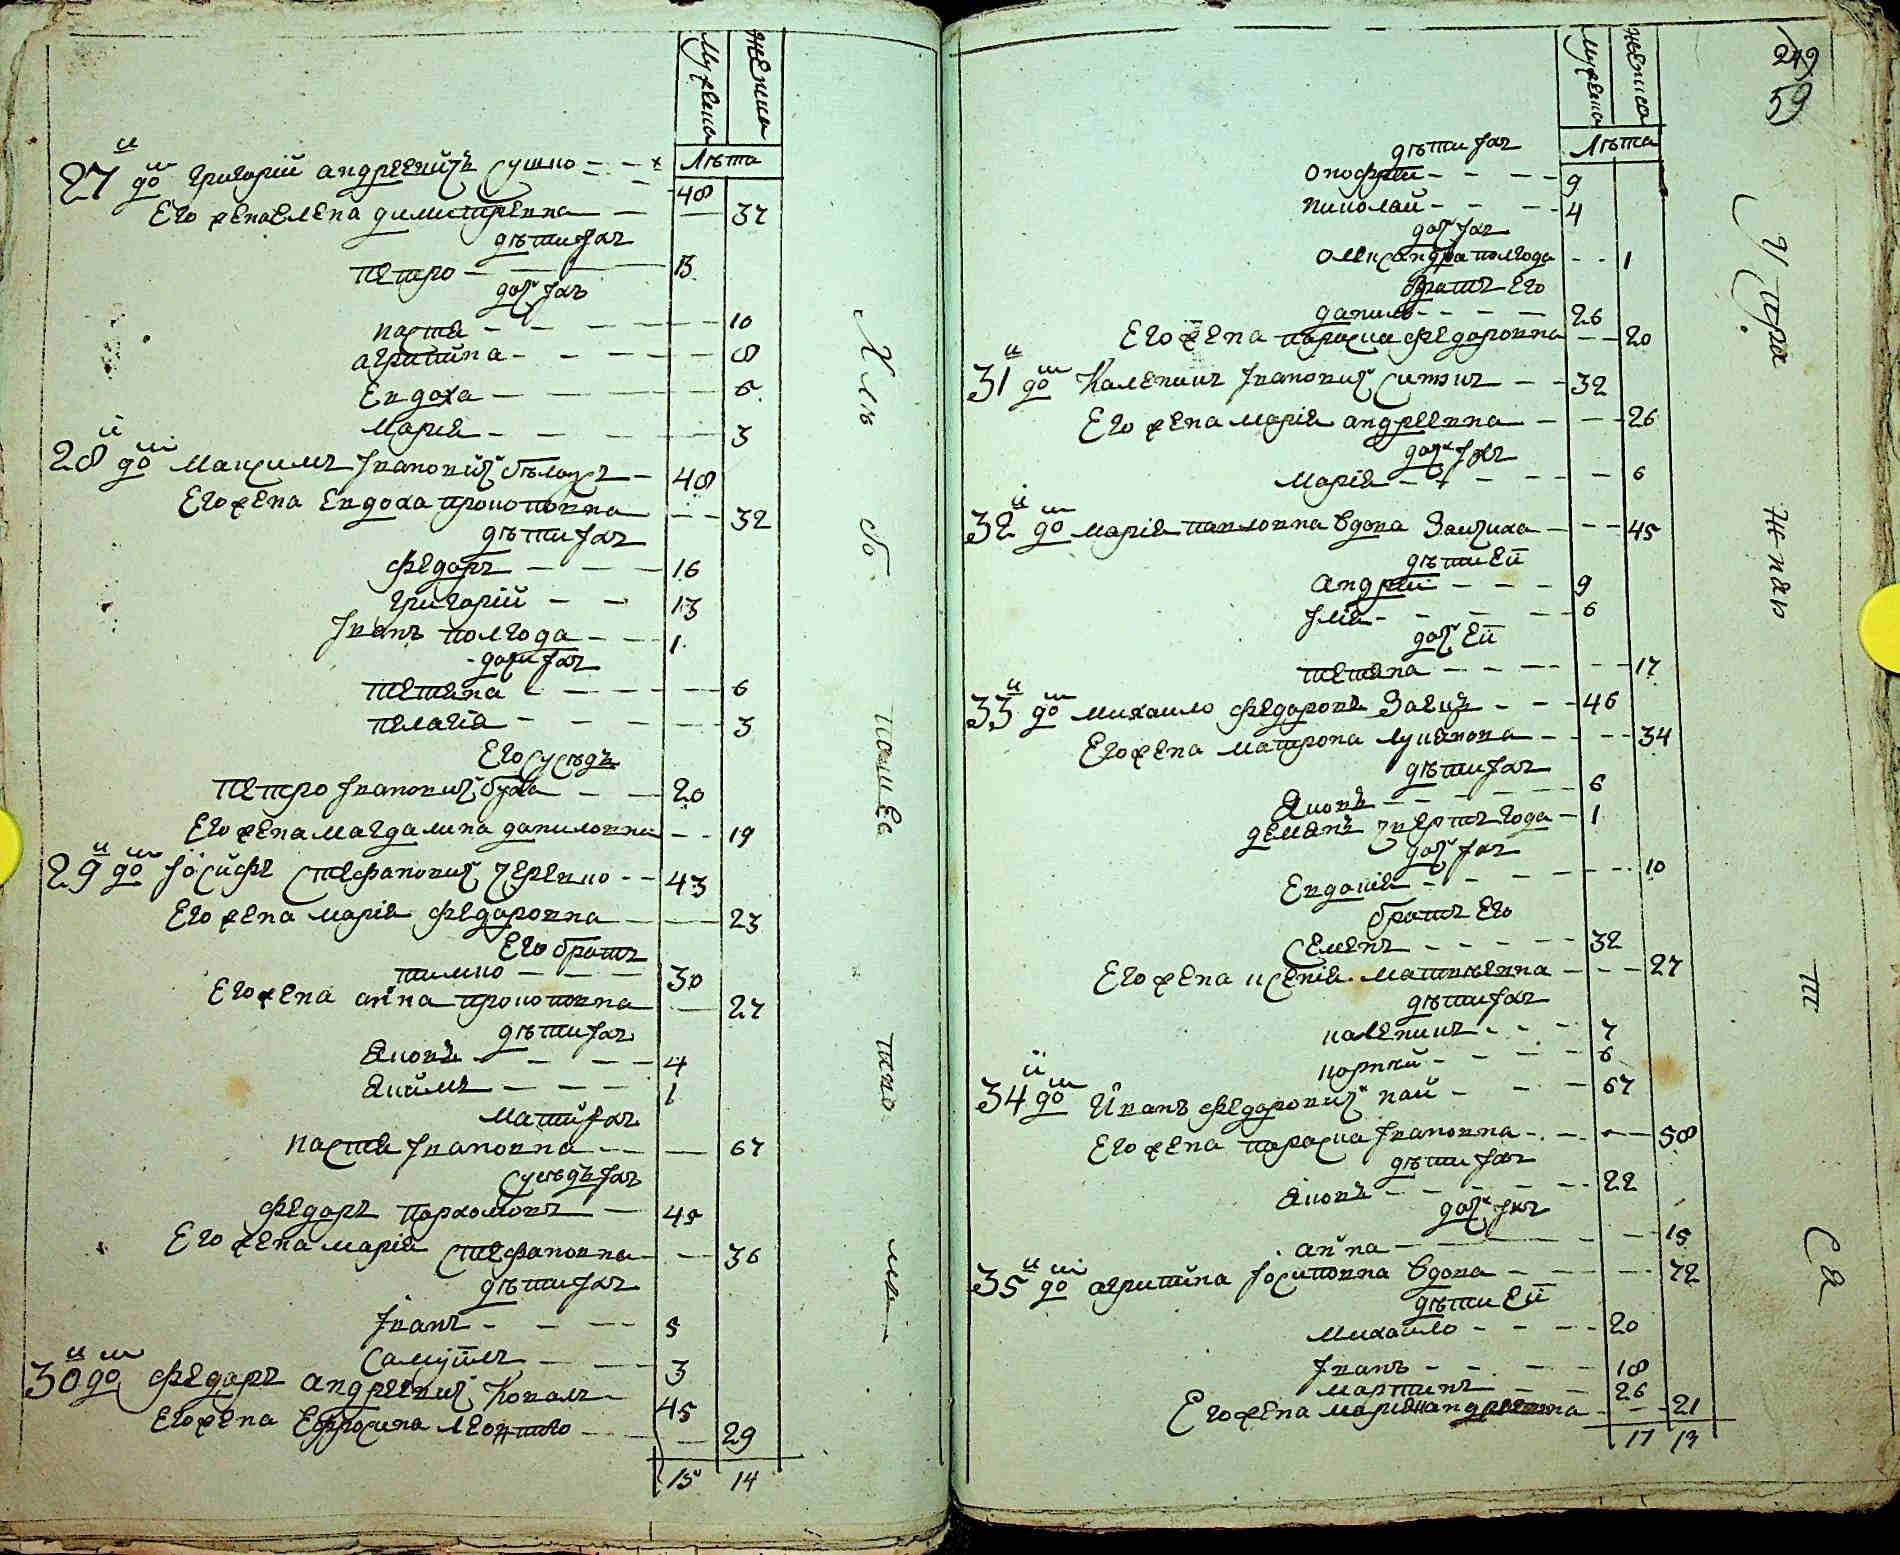 мужеска женска
Лѣта
27й до͠м Григорий андреевичъ сушко – – 48
Его жена Елена димитревна – – 37
дѣти Іхъ
петро – – 13
доч Іхъ
настя – – 10
агрипина – – 8
Евдоха – – 6
Мария – – 3
28й до͠м Максимъ Івановичъ бѣлоусъ – 48
Его жена Евдоха прокоповна – – 32
дѣти Іхъ
Федоръ – – 16
григорій – – 13
Іванъ полгода – – 1
дочки Іхъ
тетяна – – 6
пелагія – – 3
Его сусѣдъ
петро Івановичъ – – 20
Его жена магдалина даниловна – – 19
29й до͠м Іосифъ стефановичъ – – 43
Его жена марія Федоровна – – 23
Его братъ
тимко – – 30
Его жена анна прокоповна – 27
дѣти Іхъ
Яковъ – – 4
Якимъ – – 1
мати Іхъ
настя Івановна – – 67
сусѣдъ Іхъ
Федоръ пархомовъ – 45
Его жена марія стефановна – – 36
дѣти Іхъ
Іванъ – – 5
самуилъ – – 3
30й до͠м Федоръ андреевичъ Коваль – 45
Его жена Ефросина – – 29
15 14
249
59
мужеска женска
Лѣта
дѣти Іхъ
онофрій – – 9
николай – – 4
доч Іхъ
олександра полгода – – 1
братъ Его
данило – – 26
Его жена параска Федоровна – – 20
31й до͠м Каленикъ Івановичъ – – 32
Его жена марія андреевна – – 26
доч Іхъ
марія – – 6
32й до͠м марія павловна вдова – – 45
дѣти Ей
андрей – – 9
Ілія – – 6
доч Ей
тетяна – – 17
33й до͠м михаило Федоровъ Заецъ – – 46
Его жена матрона лукянова – – 34
дѣти Іхъ
Яковъ – – 6
демянъ года – 1
доч Іхъ
Евдокія – – 10
братъ Его
семенъ – – 32
Его жена ксенія матвѣевна – – 27
дѣти Іхъ
каленикъ – – 7
корній – – 6
34й до͠м Иванъ Федоровичъ – – 67
Его жена параска Івановна – – 58
дѣти Іхъ
Яковъ – – 22
доч Іхъ
анна – – 15
35й до͠м агрипина Іосиповна вдова – – 72
дѣти Ей
михаило – – 20
Іванъ – – 18
мартинъ – – 26
Его жена марія андреевна – – 21
17 13